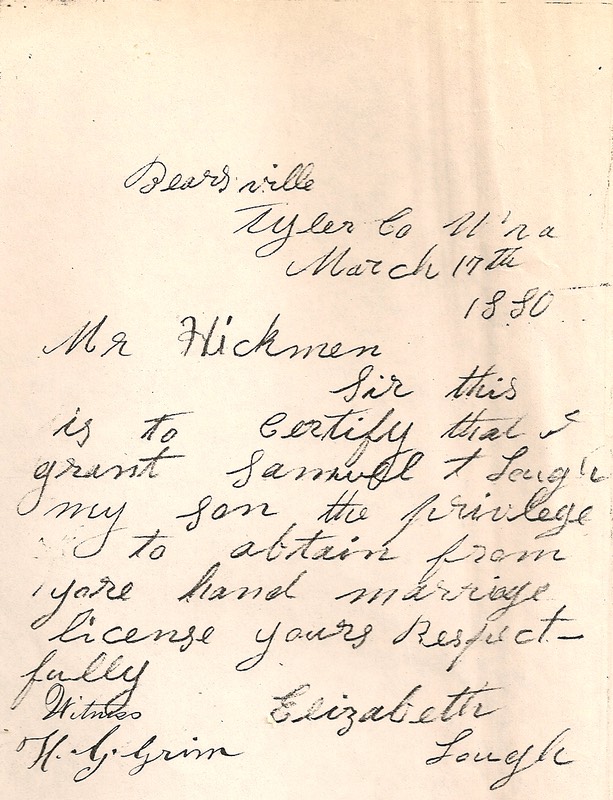 Bearsville
Tyler Co W Va
March 17th
1880
Mr Hickmen
Sir this
is to certify that I
grant Samuel T Lough
my son the privilege
to abtain from
yore hand marrige
license yours Respect-
fully
Witness Elizabeth
H. G. Grim Lough